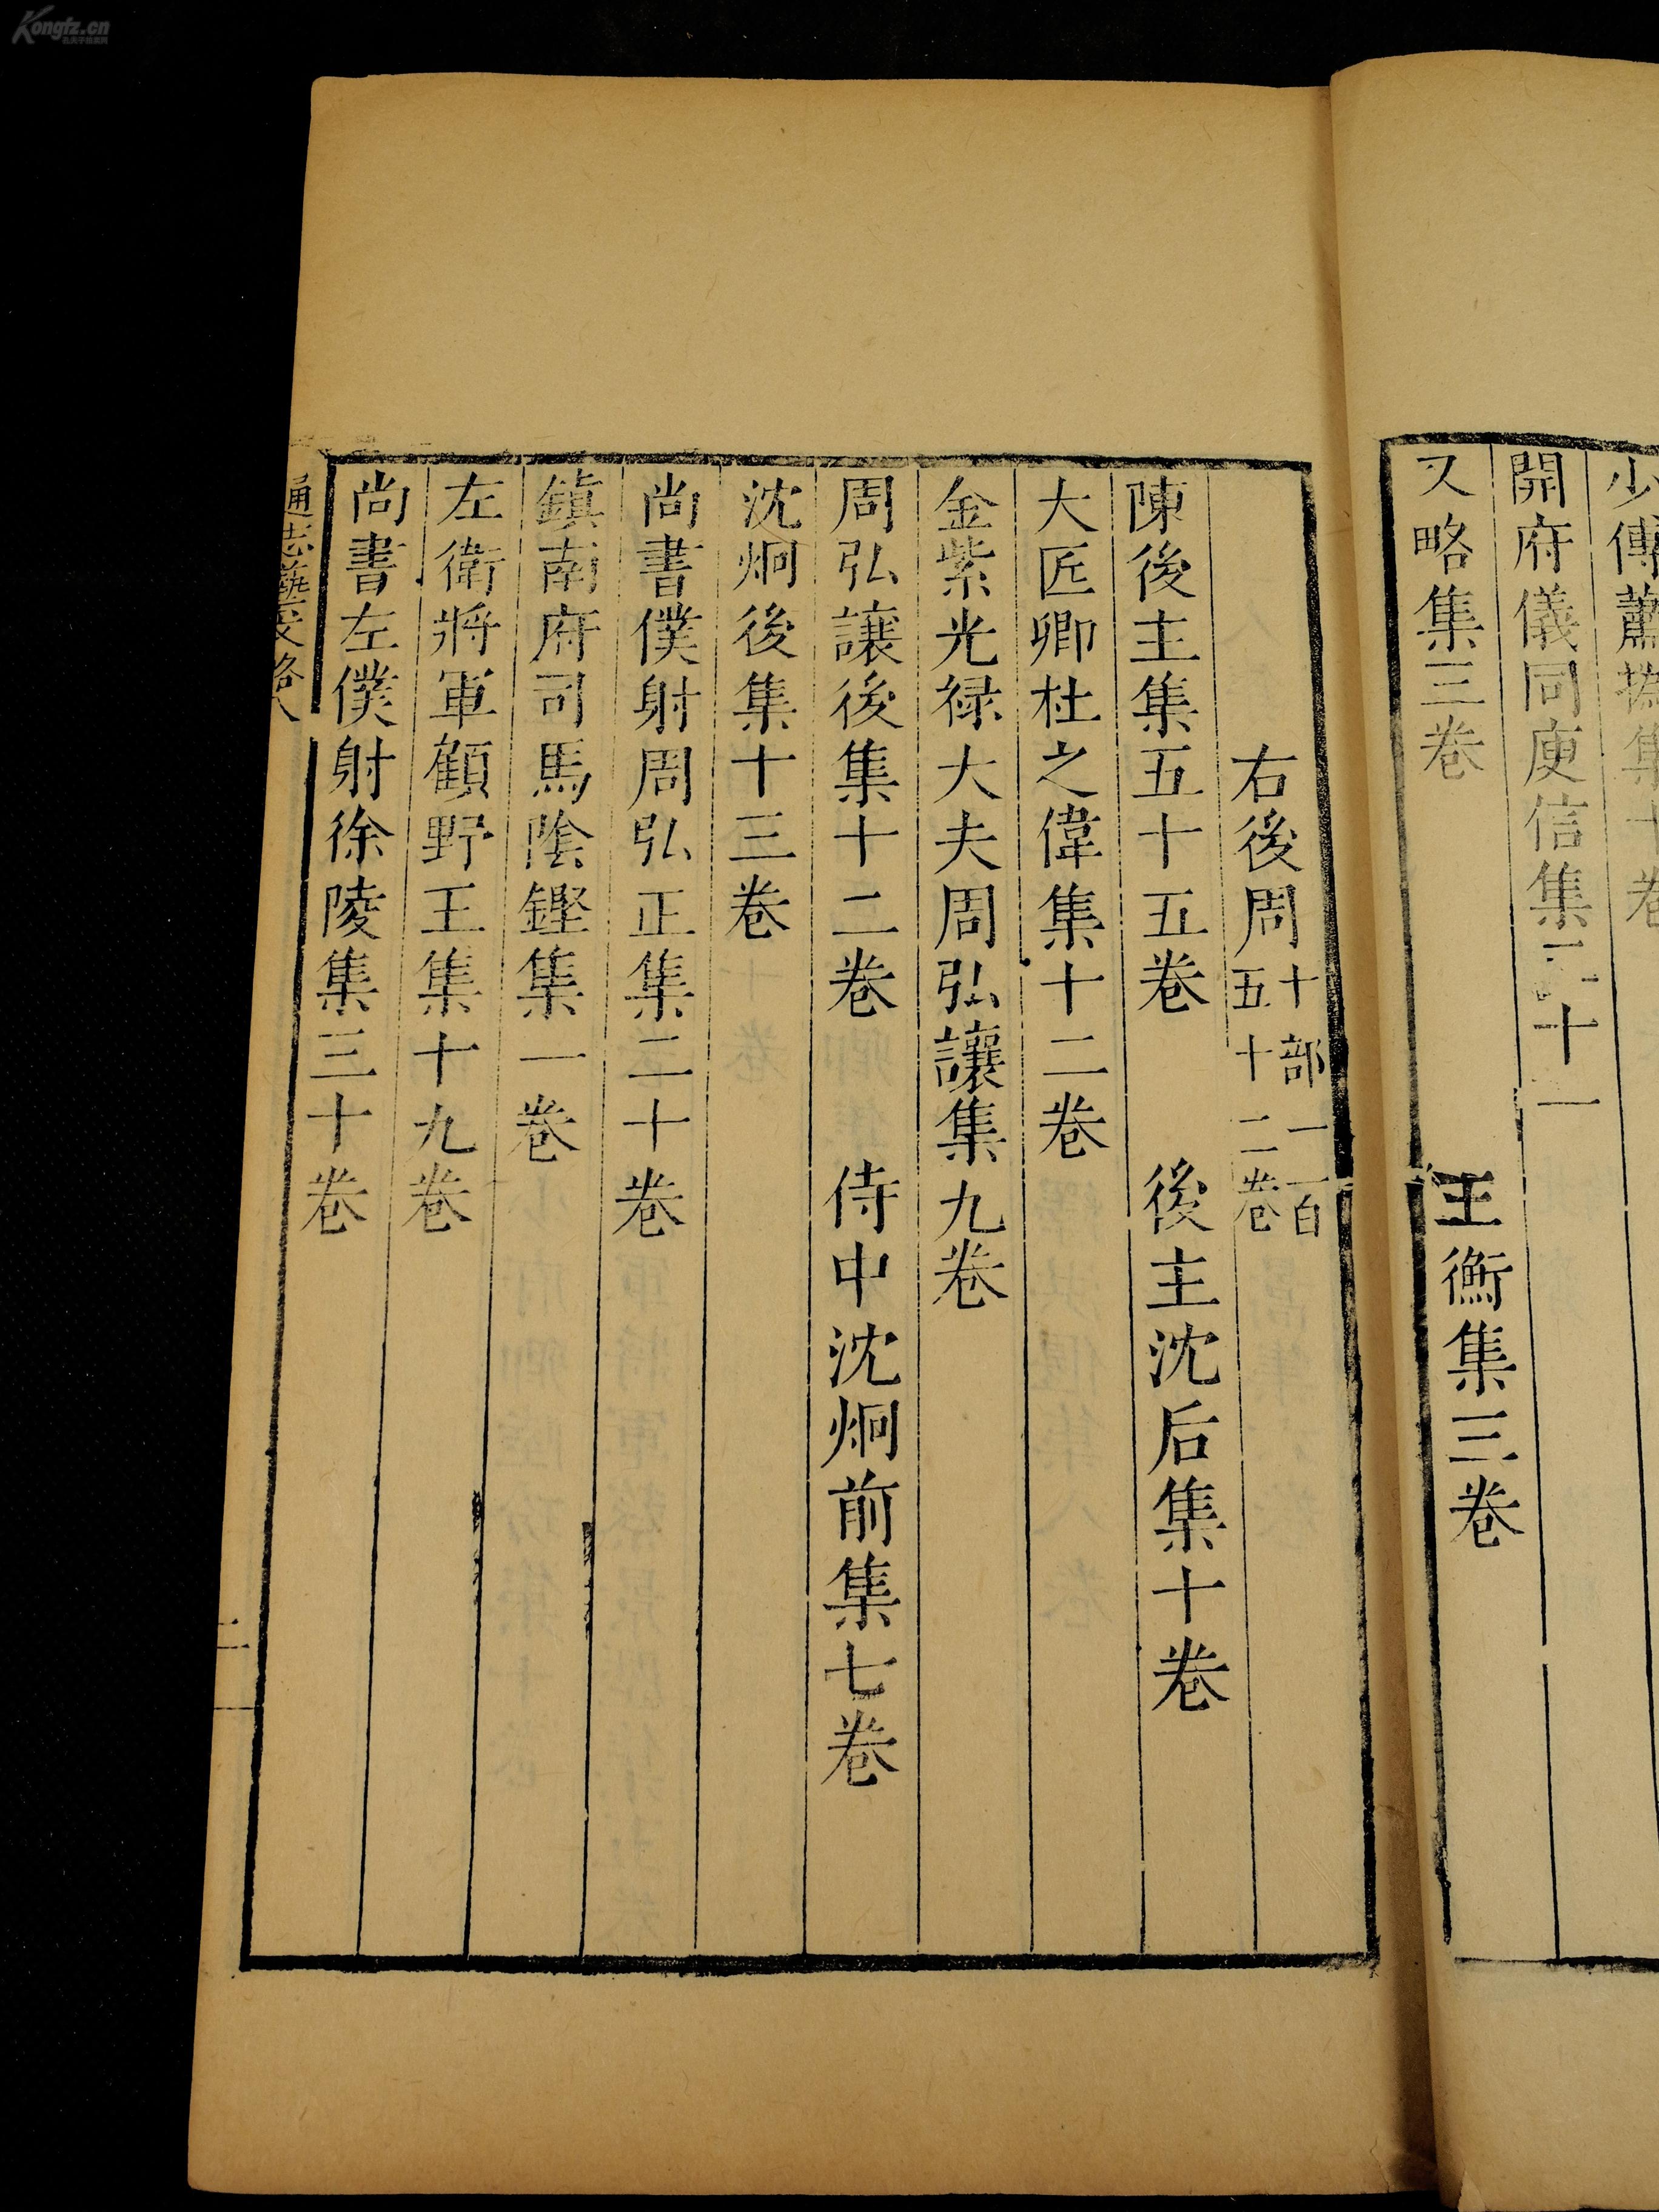 Kongfz.cn
少傅蕭撝集十卷
開府儀同庾信集二十一
又略集三卷 王衡集三卷
右後周十部一百五十二卷
陳後主集五十五卷 後主沈后集十卷
大匠卿杜之偉集十二卷
金紫光禄大夫周弘讓集九卷
周弘讓後集十二卷 侍中沈炯前集七卷
沈炯後集十三卷
尚書僕射周弘正集二十卷
鎮南府司馬陰鏗集一卷
左衛將軍顧野王集十九卷
尚書左僕射徐陵集三十卷
通志藝文略八
二